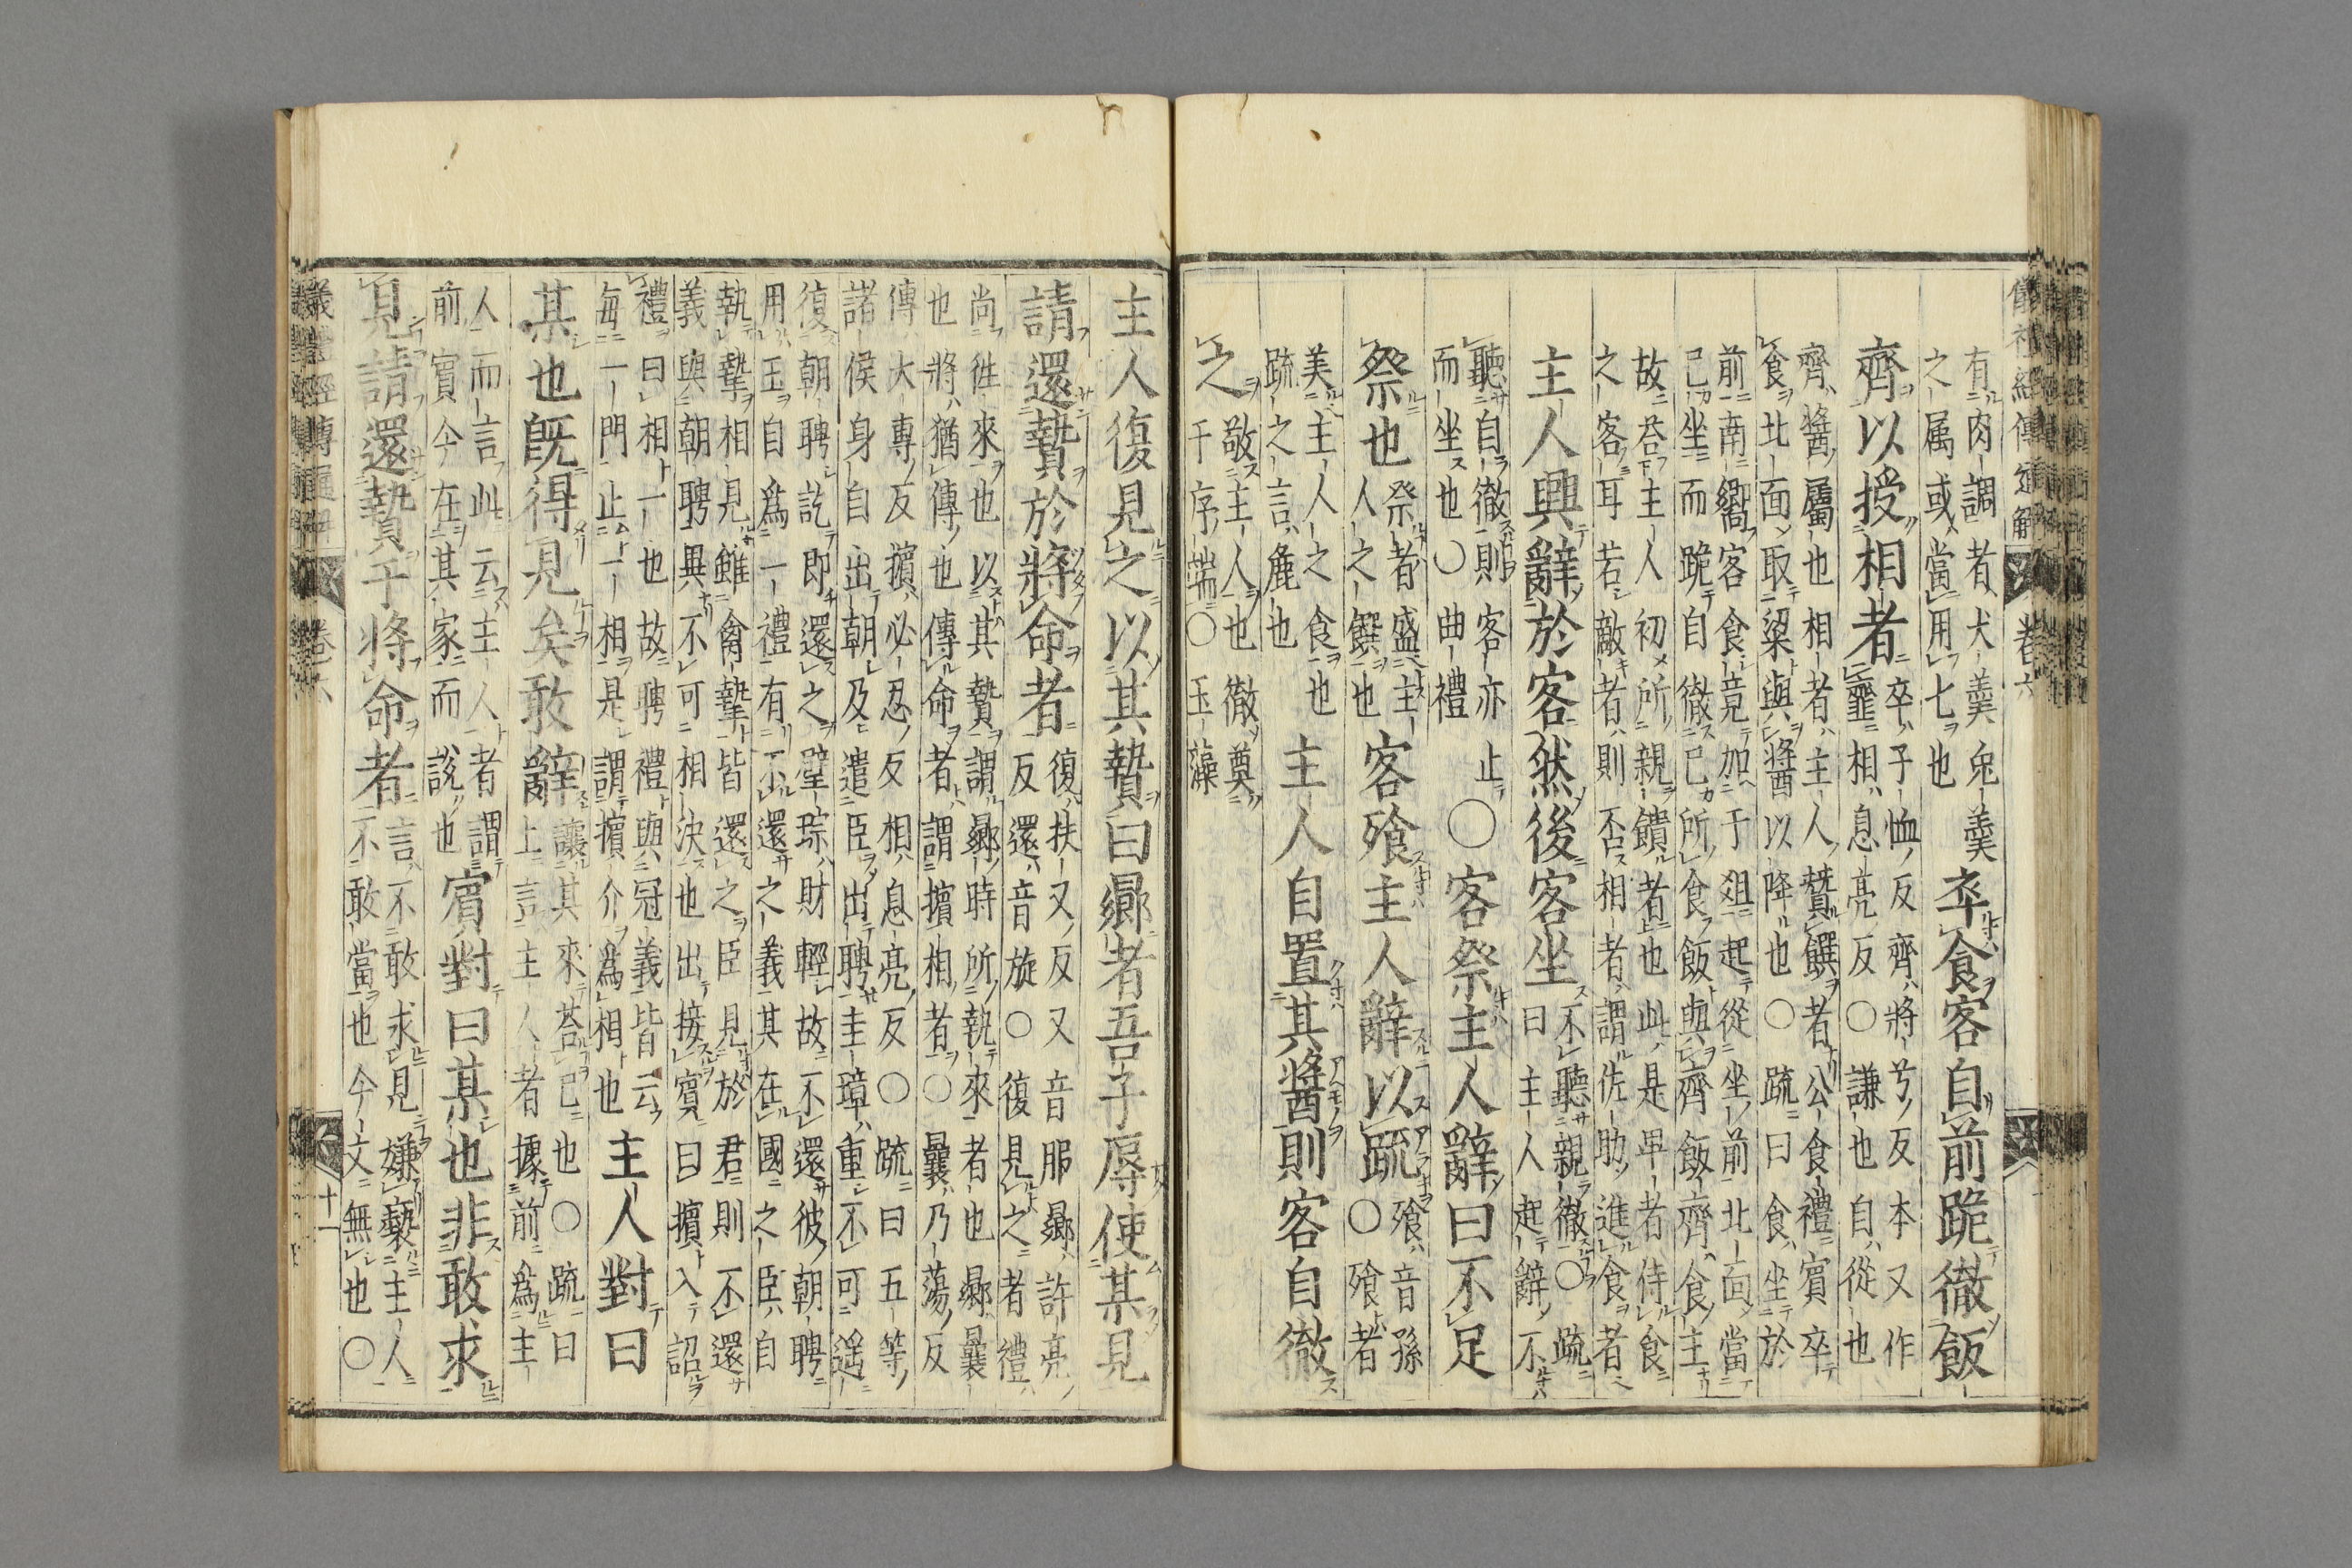 儀礼經傳通解 卷六
有肉調者犬羹兔羹
之属或當用七也
卒食客自前跪徹飯
齊以授相者
卒子恤反齊將兮反本又作
韲相息亮反〇謙也自從也
齊醬屬也相者主人贊饌者公食禮賓卒
食北面取粱與醬以降也〇疏曰食坐於
前南嚮客食竟加于俎起從坐前北面當
己坐而跪自徹己所食飯與齊飯齊食主
故荅主人初所親饋者也此是卑者侍食
之客耳若敵者則否相者謂佐助進食者
主人興辭於客然後客坐
不聽親徹〇疏
曰主人起辭不
聽自徹則客亦止
而坐也〇曲禮
〇客祭主人辭曰不足
祭也
祭者盛主
人之饌也
客飱主人辭以疏
飱音孫
〇飱者
美主人之食也
疏之言麁也
主人自置其醬則客自徹
之
敬主人也徹奠
于序端〇玉藻
主人復見之以其贄曰曏者吾子辱使某見
請還贄於將命者
復扶又反又音服曏許亮
反還音旋〇復見之者禮
尚徃來也以其贄謂曏時所執來者也曏曩
也將猶傳也傳命者謂擯相者〇曩乃蕩反
傳大專反擯必忍反相息亮反〇疏曰五等
諸侯身自出朝及遣臣出聘圭璋重不可遥
復朝聘訖即還之璧琮財輕故不還彼朝聘
用玉自為一禮有不還之義其在國之臣自
執摯相見雖禽摯皆還之臣見於君則不還
義與朝聘異不可相決也出接賓曰擯入詔
禮曰相一也故聘禮與冠義皆云
每一門止一相是謂擯介為相也
主人對曰
某也既得見矣敢辭
讓其來荅己也〇疏曰
上言主人者據前為主
人而言此云主人者謂
前賓今在其家而說也
賓對曰某也非敢求
見請還贄于將命者
言不敢求見嫌褻主人
不敢當也今文無也〇
儀禮經傳通解 卷六 十一